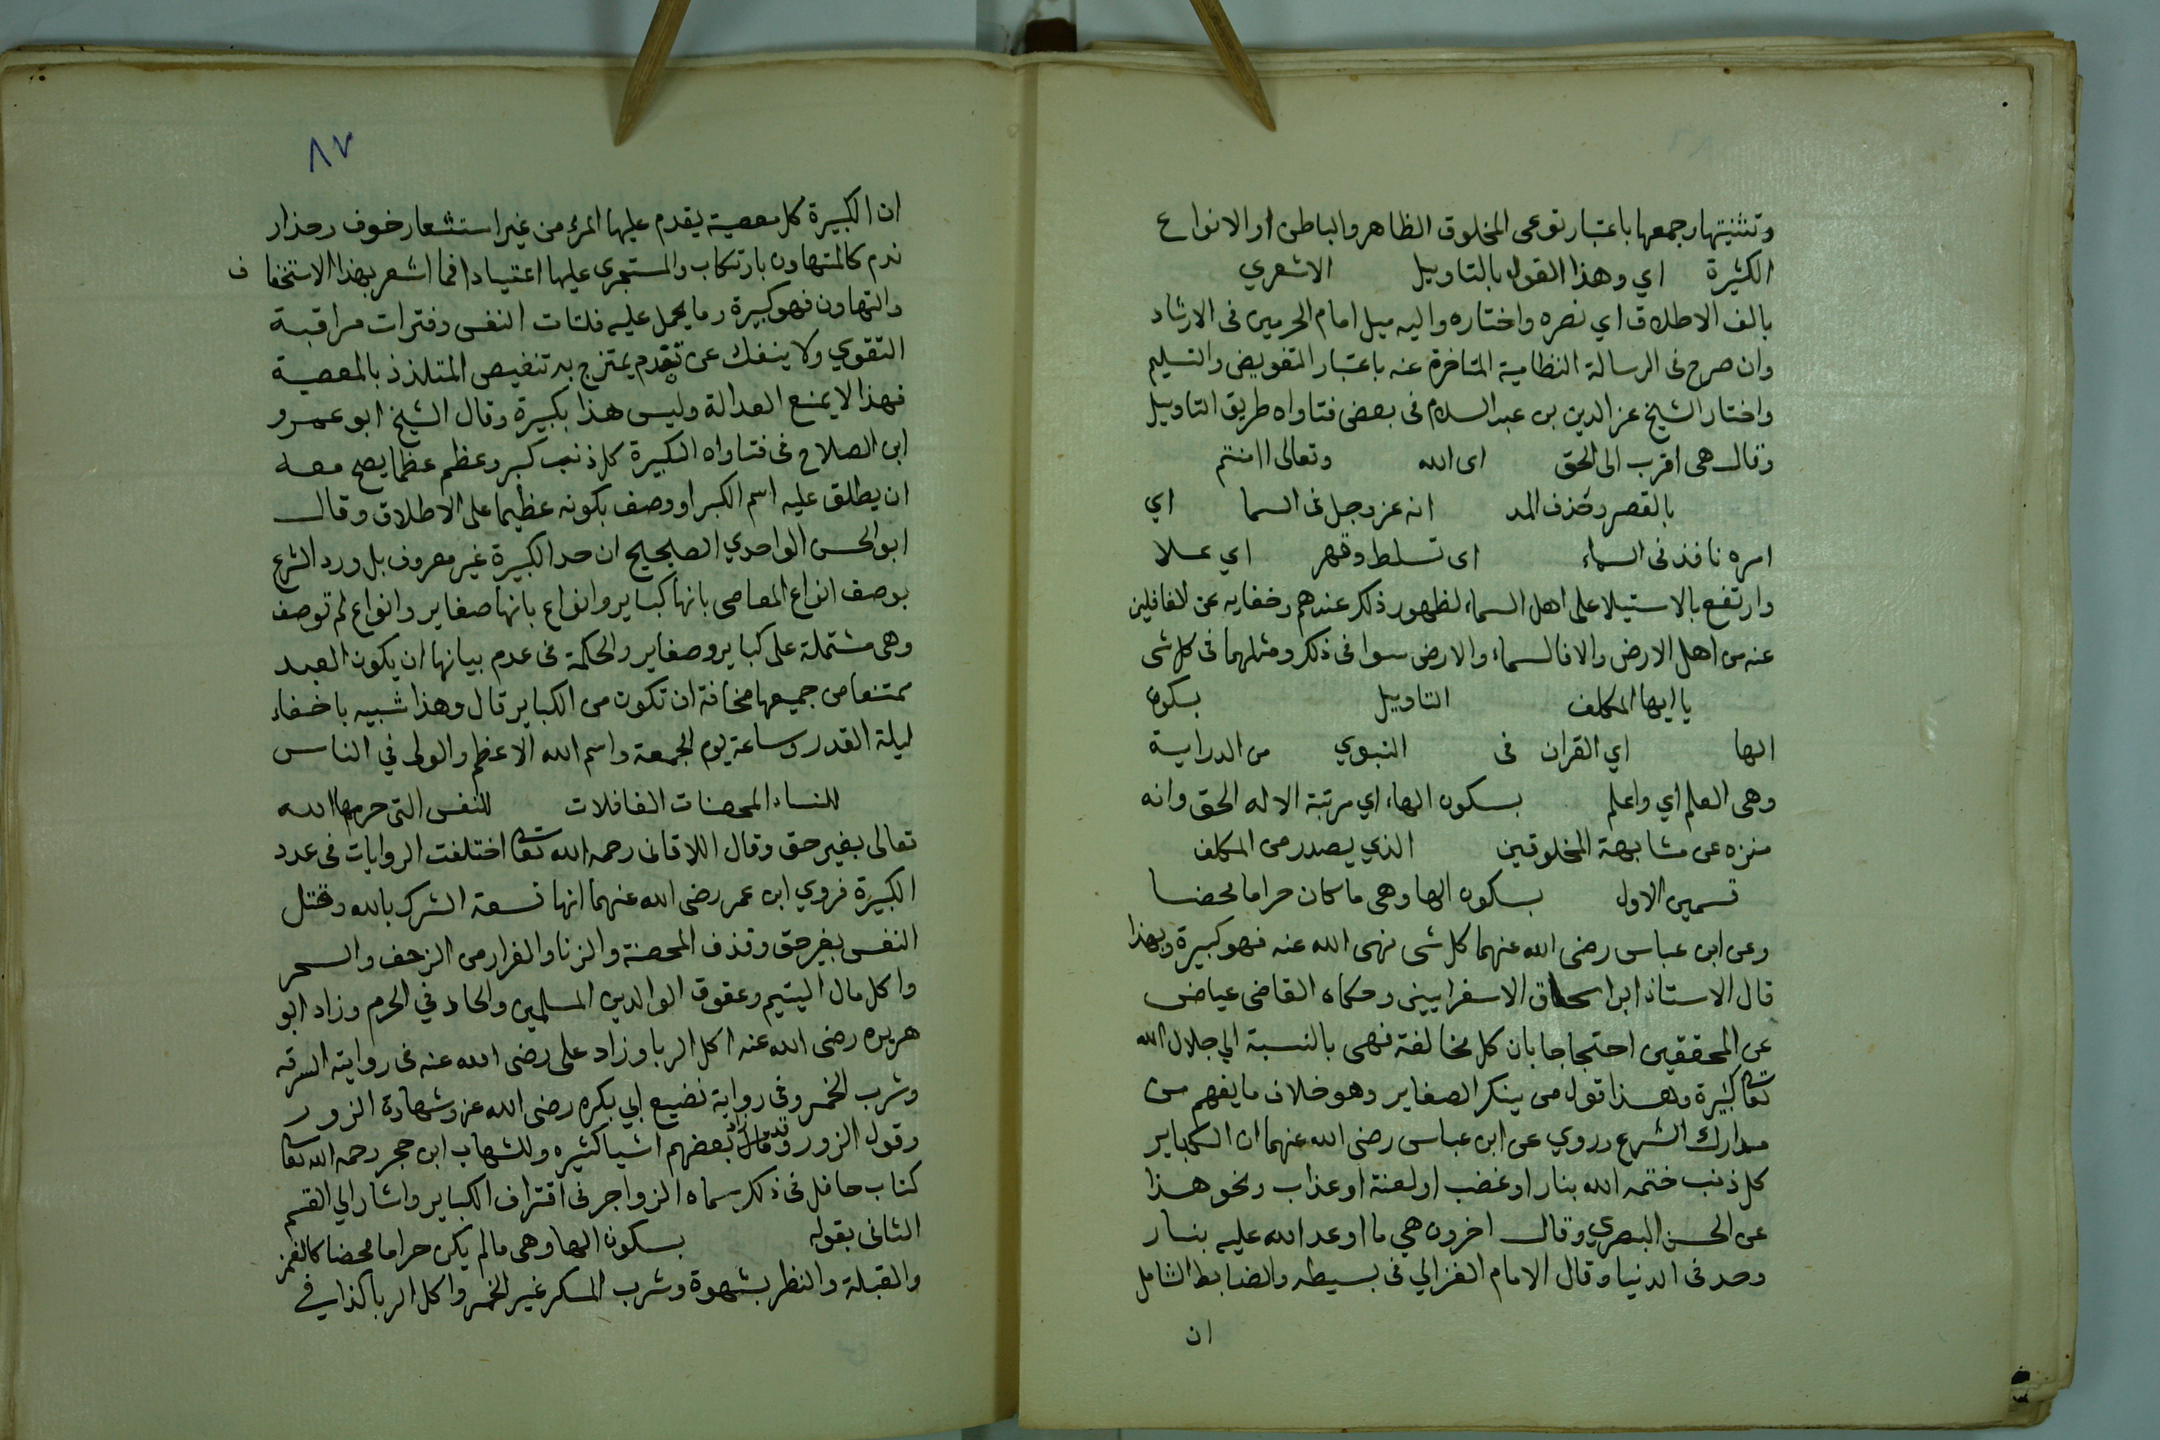 وتثنيتها وجمعها باعتبار نوعي المخلوق الظاهر والباطن او الانواع
الكثيرة اي وهذا القول بالتاويل الاشعري
بالف الاطلاق اي نصره واختاره واليه ميل امام الحرمين في الارشاد
وان صرح في الرسالة النظامية المتاخرة عنه باعتبار التفويض والتسليم
واختار الشيخ عز الدين بن عبد السلام في بعض فتاواه طريق التاويل
وقال هي اقرب الى الحق اى الله وتعالى اامنتم
بالقصر وحذف المد انه عز وجل في السما اي
امره نافذ في السماء اى تسلط وقهر اي علا
وارتفع بالاستيلا على اهل السماء لظهور ذلك عندهم وخفايه عن الغافلين
عنه من اهل الارض والا فالسماء والارض سوا في ذلك ومثلهما في كل شى
يا ايها المكلف التاويل بسكون
الها اي القران في النبوي من الدراية
وهي العلم اي واعلم بسكون الهاء اي مرتبة الاله الحق وانه
منزه عن مشابهة المخلوقين الذي يصدر من المكلف
قسمين الاول بسكون الها وهي ما كان حراما محضا
وعن ابن عباس رضى الله عنهما كل شى نهى الله عنه فهو كبيرة وبهذا
قال الاستاذ ابو اسحاق الاسفراييني وحكاه القاضي عياض
عن المحققين احتجاجا بان كل مخالفة فهي بالنسبة الي جلال الله
تعا كبيرة وهذا قول من ينكر الصغاير وهو خلاف ما يفهم من
مدارك الشرع وروي عن ابن عباس رضى الله عنهما ان الكباير
كل ذنب ختمه الله بنار او غضب او لعنة او عذاب ونحو هذا
عن الحسن البصري وقال اخرون هي ما اوعد الله عليه بنار
وحد في الدنيا وقال الامام الغزالي في بسيطه والضابط الشامل
ان
٨٧
ان الكبيرة كل معصية يقدم عليها المرء من غير استشعار خوف وحذار
ندم كالمتهاون بارتكاب والمستجري عليها اعتيادا فما اشعر بهذا الاستخفاف
والتهاون فهو كبيرة وما يحمل عليه فلتات النفس وفترات مراقبة
التقوي ولا ينفك عن تقدم يمتزج به تنغيص المتلذذ بالمعصية
فهذا لا يمنع العدالة وليس هذا بكبيرة وقال الشيخ ابو عمرو
ابن الصلاح في فتاواه الكبيرة كل ذنب كبر وعظم عظما يصح معه
ان يطلق عليه اسم الكبر او وصف بكونه عظيما على الاطلاق وقال
ابو الحسن الواحدي الصحيح ان حد الكبيرة غير معروف بل ورد الشرع
بوصف انواع المعاصى بانها كباير وانواع بانها صغاير وانواع لم توصف
وهي مشتملة على كباير وصغاير والحكمة في عدم بيانها ان يكون العبد
ممتنعا من جميعها مخافة ان تكون من الكباير قال وهذا شبيه باخفاء
ليلة القدر وساعة يوم الجمعة واسم الله الاعظم والولى في الناس
للنساء المحصنات الغافلات للنفس التي حرمها الله
تعالى بغير حق وقال اللاقانى رحمه الله تعا اختلفت الروايات في عدد
الكبيرة فروي ابن عمر رضى الله عنهما انها تسعة الشرك بالله وقتل
النفس بغير حق وقذف المحصنة والزنا والفرار من الزحف والسحر
واكل مال اليتيم وعقوق الوالدين المسلمين والحاد في الحرم وزاد ابو
هريره رضى الله عنه اكل الربا وزاد على رضى الله عنه في روايته السرقه
وشرب الخمر وفي رواية نضيع ابي بكره رضى الله عنه وشهادة الزور
وقول الزور وقد زاد بعضهم اشيا كثيره وللشهاب ابن حجر رحمه الله تعا
كتاب حافل في ذلك سماه الزواجر في اقتراف الكباير واشار الي القسم
الثانى بقوله بسكون الها وهي مالم يكن حراما محضا كالغمز
والقبلة والنظر بشهوة وشرب المسكر غير الخمر واكل الربا كذا في